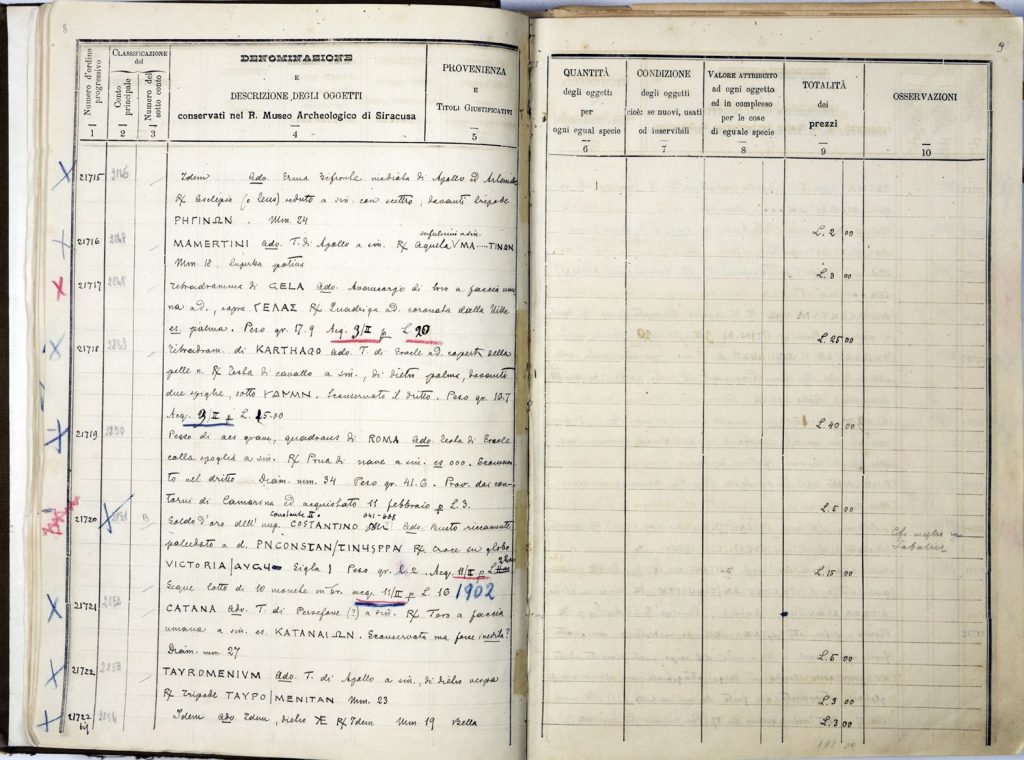 8
Numero d'ordine progressivo
CLASSIFICAZIONE del
Conto principale
Numero del sotto conto
DENOMINAZIONE
E
DESCRIZIONE DEGLI OGGETTI
conservati nel R. Museo Archeologico di Siracusa
PROVENIENZA
E
TITOLI GIUSTIFICATIVI
1 2 3 4 5
21715 2846 Idem Adv. Erma bifronte di Apollo ed
R/ Asclepio seduto a sin. con scettro, davanti tripode
ΡΗΓΙΝΩΝ. Mm. 24
21716 2847 MAMERTINI Adv. T. di Apollo a sin. R/ Aquila VMA.....TINΩN
Mm 18. Superba patina
21717 2848 Tetradramma di GELA Adv. Avancorpo di toro a faccia uma
na a d., sopra ΓΕΛΑΣ R/ Quadriga a d. coronata dalla Nike
es. palma. Peso gr. 17.9 Acq. 9/II p. L 20
21718 2849 Tetradram. di KARTHAGO Adv. T. di Eracle a d. coperta della
pelle n. R/ Testa di cavallo a sin., di dietro palma, davanti
due spighe, sotto Sconservato il dritto. Peso gr. 16.7
Acq. 9/II p. L. 25.00
21719 2850 Pezzo di aes grave, quadrans di ROMA Adv. Testa di Eracle
colla spoglia a sin. R/ Prua di nave a sin. es 000. Sconserva
to nel dritto Diam. mm. 34 Peso gr. 41.6. Prov. dai con-
torni di Camarina ed acquistato 11 febbraio p. L 3.
Constante II° 641-668
21720 2851 B Soldo d'oro dell'imp. COSTANTINO Adv. Busto riccamente
paludato a d. R/ Croce su globo
VICTORIA/AVGЧ Sigla Peso gr. Acq. 11/II p. L
Segue lotto di 10 monete in br. acq. 11/II p. L. 16 1902
21721 2852 CATANA Adv. T. di Persefone (?) a sin. R/ Toro a faccia
umana a sin. es. KATANAIΩN. Sconservata ma forse inedita?
Diam. mm. 27
21722 2853 TAYROMENIUM Adv. T. di Apollo a sin., di dietro vespa
R/ Tripode TAYPO/MENITAN Mm. 23
21722 bis 2854 Idem Adv. Idem, dietro R/ Idem Mm. 19 Bella
9
QUANTITÀ
degli oggetti
per
ogni egual specie
CONDIZIONE
degli oggetti
cioè: se nuovi, usati
od inservibili
VALORE ATTRIBUITO
ad ogni oggetto
ed in complesso
per le cose
di eguale specie
TOTALITÀ
dei
prezzi
OSSERVAZIONI
6 7 8 9 10
L. 2 00
L. 3 00
L. 25 00
L. 40 00
L. 5 00
L. 15 00
L. 5 00
L. 3 00
L. 3 00